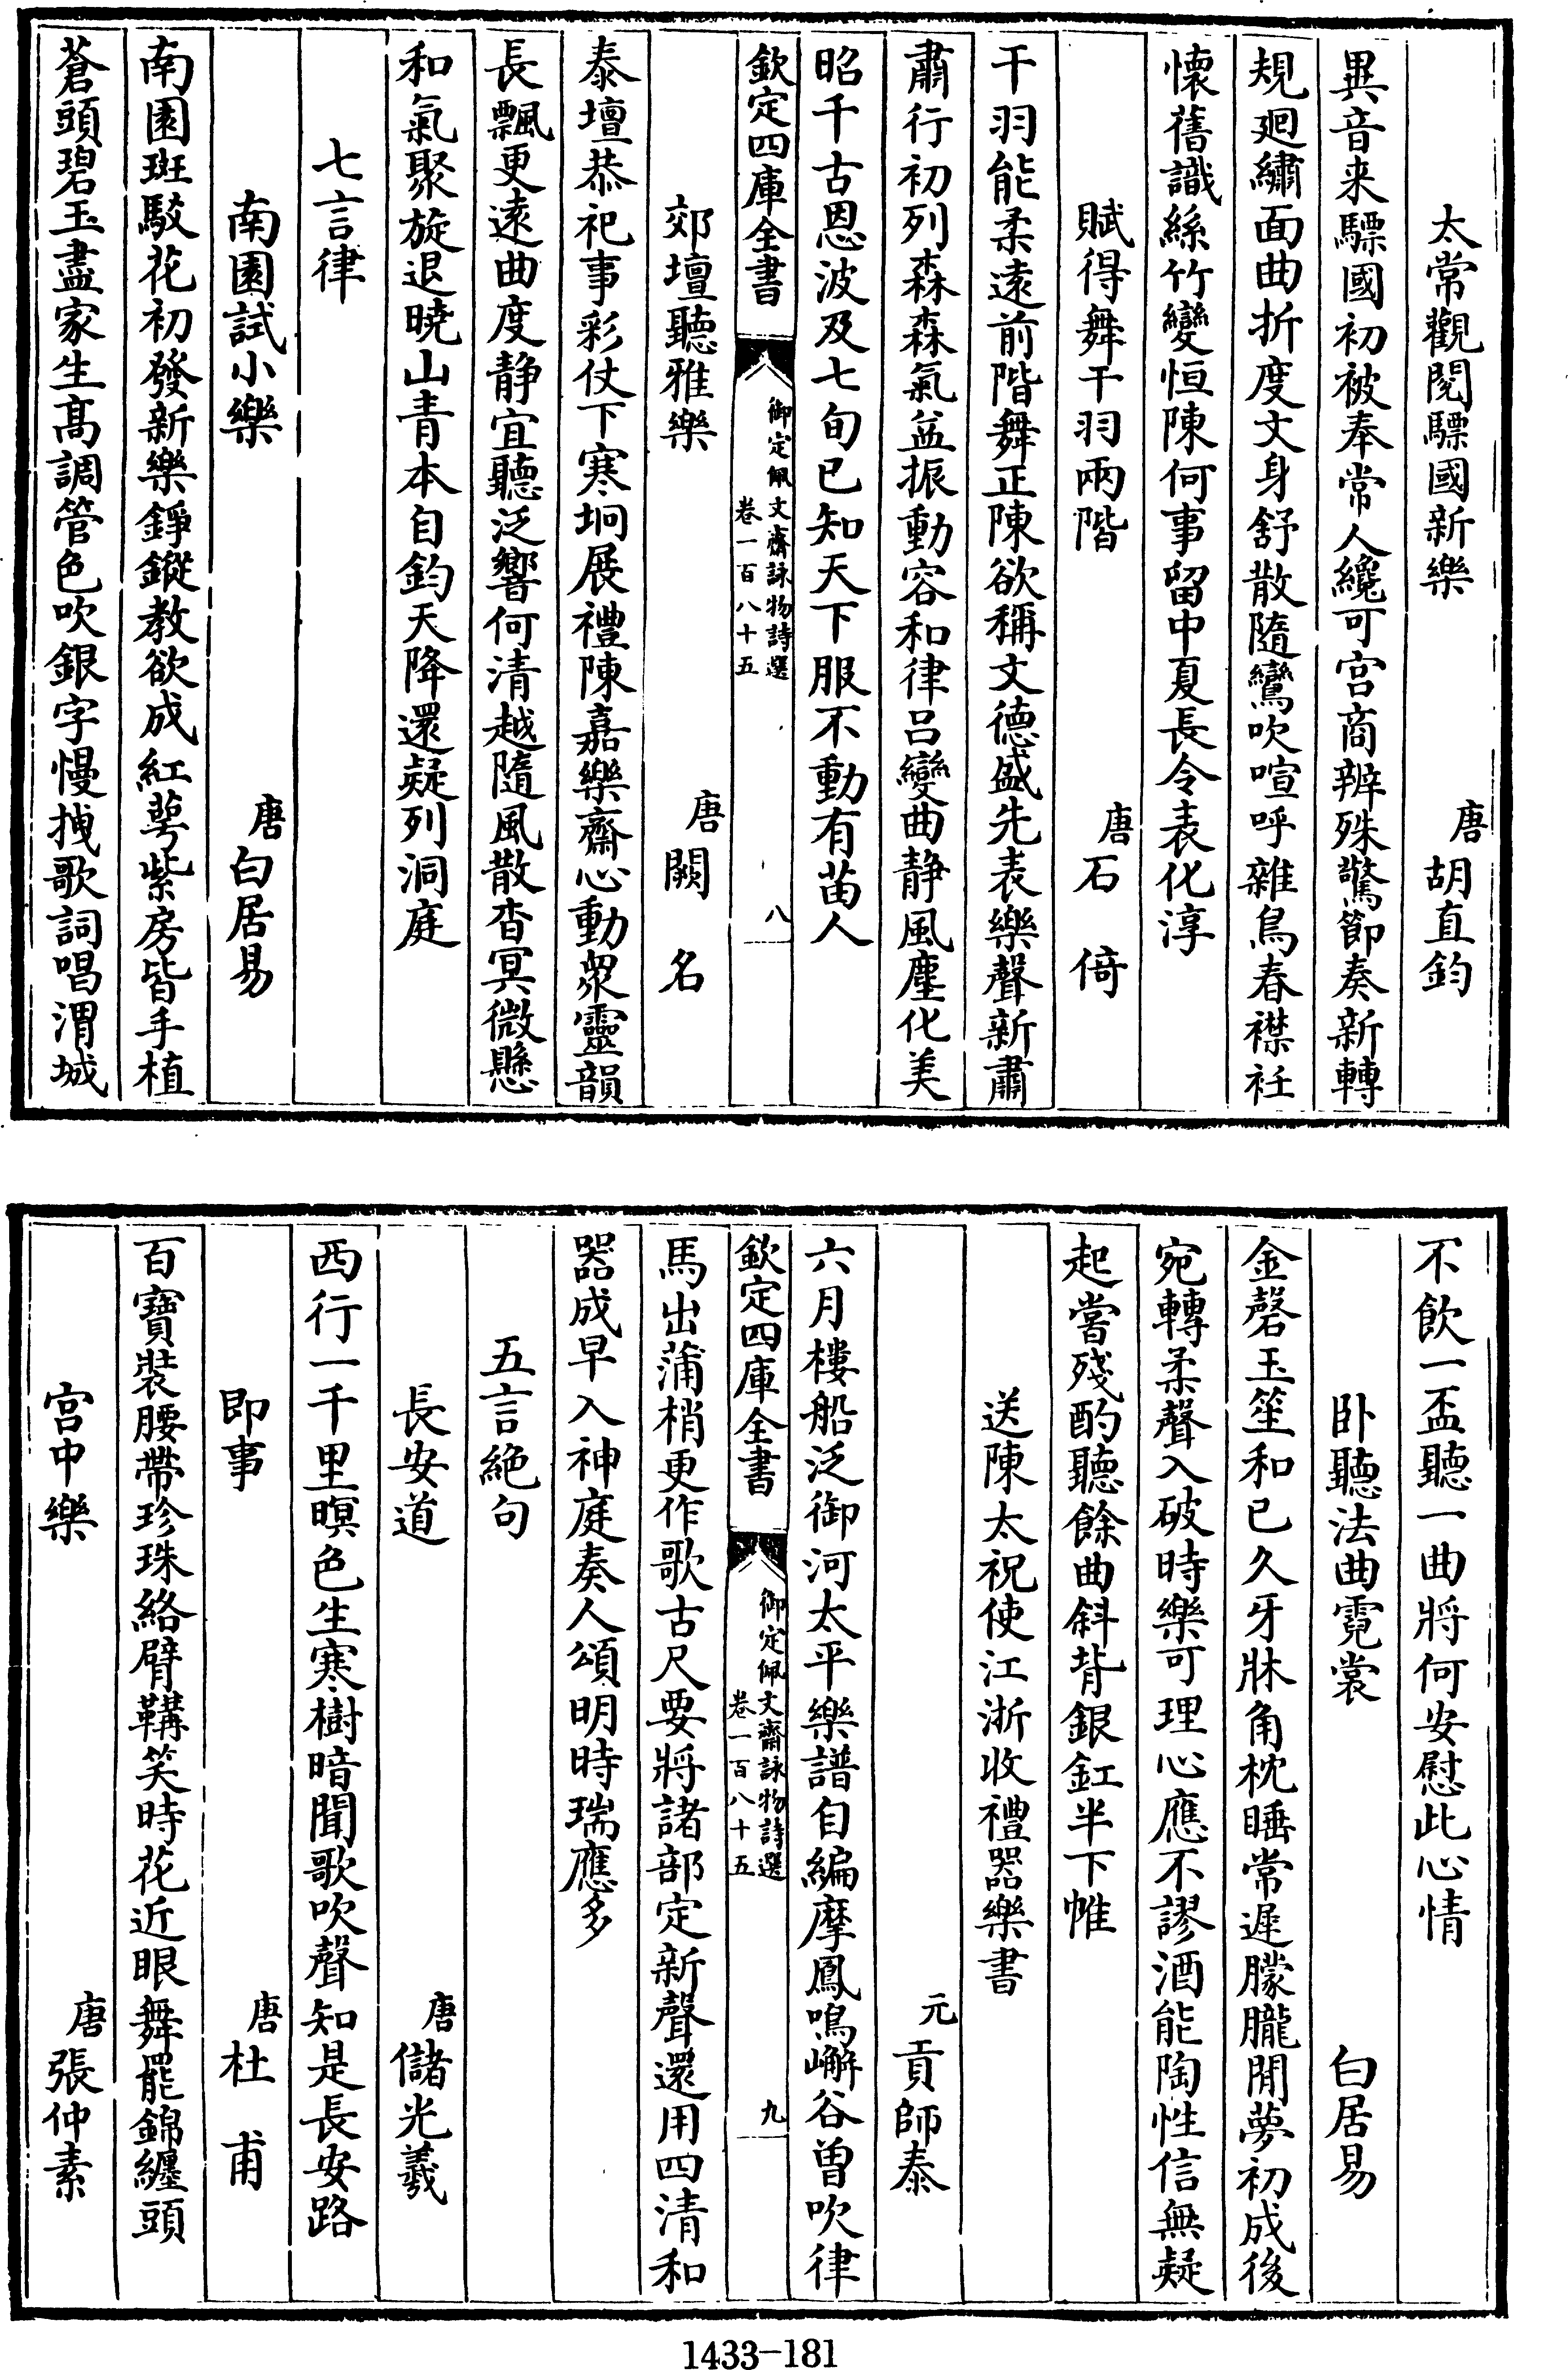 太常觀閱驃國新樂　唐胡直鈞
異音来驃國初被奉常人纔可宫商辨殊驚節奏新轉
規廻繡面曲折度文身舒散隨鸞吹喧呼雜鳥春襟衽
懐舊識絲竹變恒陳何事留中夏長令表化淳
賦得舞干羽兩階　唐石倚
干羽能柔逺前階舞正陳欲稱文德盛先表樂聲新肅
肅行初列森森氣益振動容和律吕變曲静風塵化美
昭千古恩波及七旬已知天下服不動有苗人
欽定四庫全書　御定佩文齋詠物詩選卷一百八十五　八
郊壇聽雅樂　唐闕名
泰壇恭祀事彩仗下寒坰展禮陳嘉樂齋心動衆靈韻
長飄更逺曲度静宜聽泛響何清越隨風散杳冥微懸
和氣聚旋退曉山青本自鈞天降還疑列洞庭
七言律
南園試小樂　唐白居易
南園斑駁花初發新樂錚鏦教欲成紅萼紫房皆手植
蒼頭碧玉盡家生髙調管色吹銀字慢拽歌詞唱渭城
不飲一盃聽一曲將何安慰此心情
卧聽法曲霓裳　白居易
金磬玉笙和已久牙牀角枕睡常遲朦朧閒夢初成後
宛轉柔聲入破時樂可理心應不謬酒能陶性信無疑
起嘗殘酌聽餘曲斜背銀釭半下帷
送陳太祝使江浙收禮器樂書
元貢師泰
六月樓船泛御河太平樂譜自編摩鳳鳴嶰谷曾吹律
欽定四庫全書　御定佩文齋詠物詩選卷一百八十五　九
馬出蒲梢更作歌古尺要將諸部定新聲還用四清和
器成早入神庭奏人頌明時瑞應多
五言絶句
長安道　唐儲光羲
西行一千里暝色生寒樹暗聞歌吹聲知是長安路
即事　唐杜甫
百寶裝腰帶珍珠絡臂鞲笑時花近眼舞罷錦纏頭
宫中樂　唐張仲素
1433-181